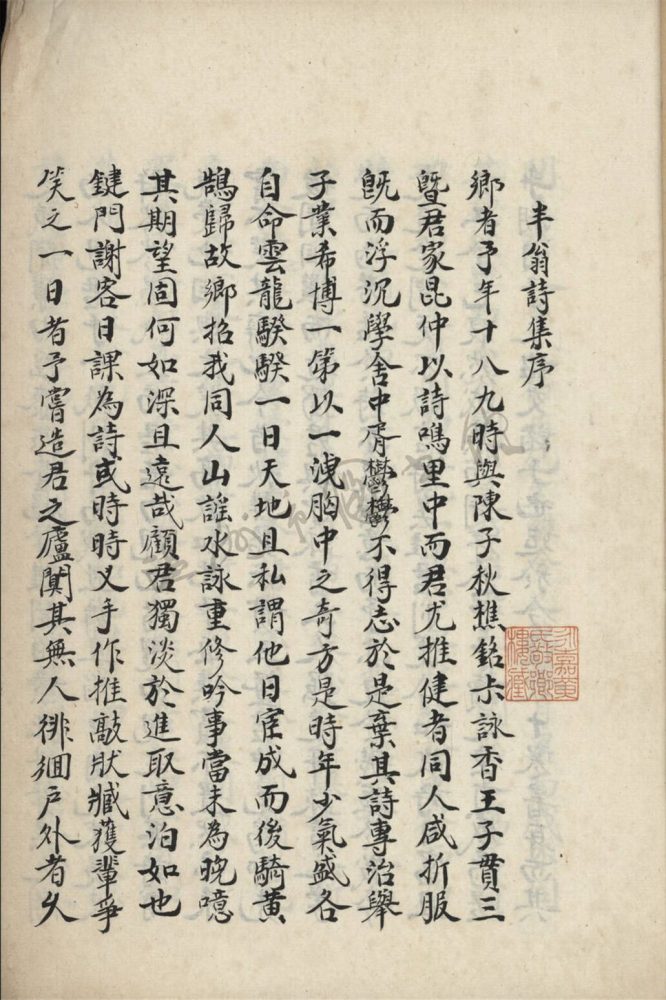 半翁詩集序
鄉者予年十八九時與陳子秋樵銘占詠香王子貫三
曁君家昆仲以詩鳴里中而君尤推健者同人咸折服
旣而浮沉學舍中胥鬱鬱不得志於是棄其詩專治舉
子業希博一第以一洩胸中之奇方是時年少氣盛各
自命雲龍騤騤一日天地且私謂他日宦成而後騎黃
鵠歸故鄉招我同人山謡水詠重修吟事當未為晚噫
其期望固何如深且遠哉顧君獨淡於進取意泊如也
鍵門謝客日課為詩或時時叉手作推敲狀臧獲輩爭
笑之一日者予嘗造君之廬闃其無人徘徊戶外者久
永嘉黃
氏敬鄉
樓藏